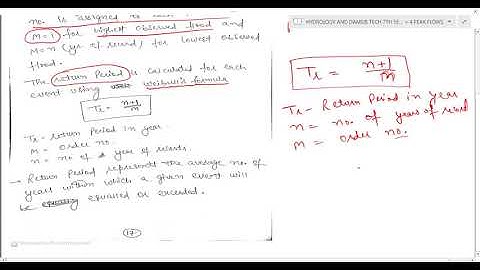 no. is assigned to
M=1 for highest observed flood and
M=n (yr of record) for lowest observed
flood.
The return Period is calculated for each
event using Weibull's formula
Tr = n+1/m
Tr = return Period in year
M = order no.
n = no. of year of records.
→ Return Period represents the average no. of
years within which a given event will
be equalled or exceeded.
17
HYDROLOGY AND DAMS B TECH 7TH SE... > 4 PEAK FLOWS
Tr = n+1/m
Tr - Return Period in year
n = no. of years of record
m = order no.